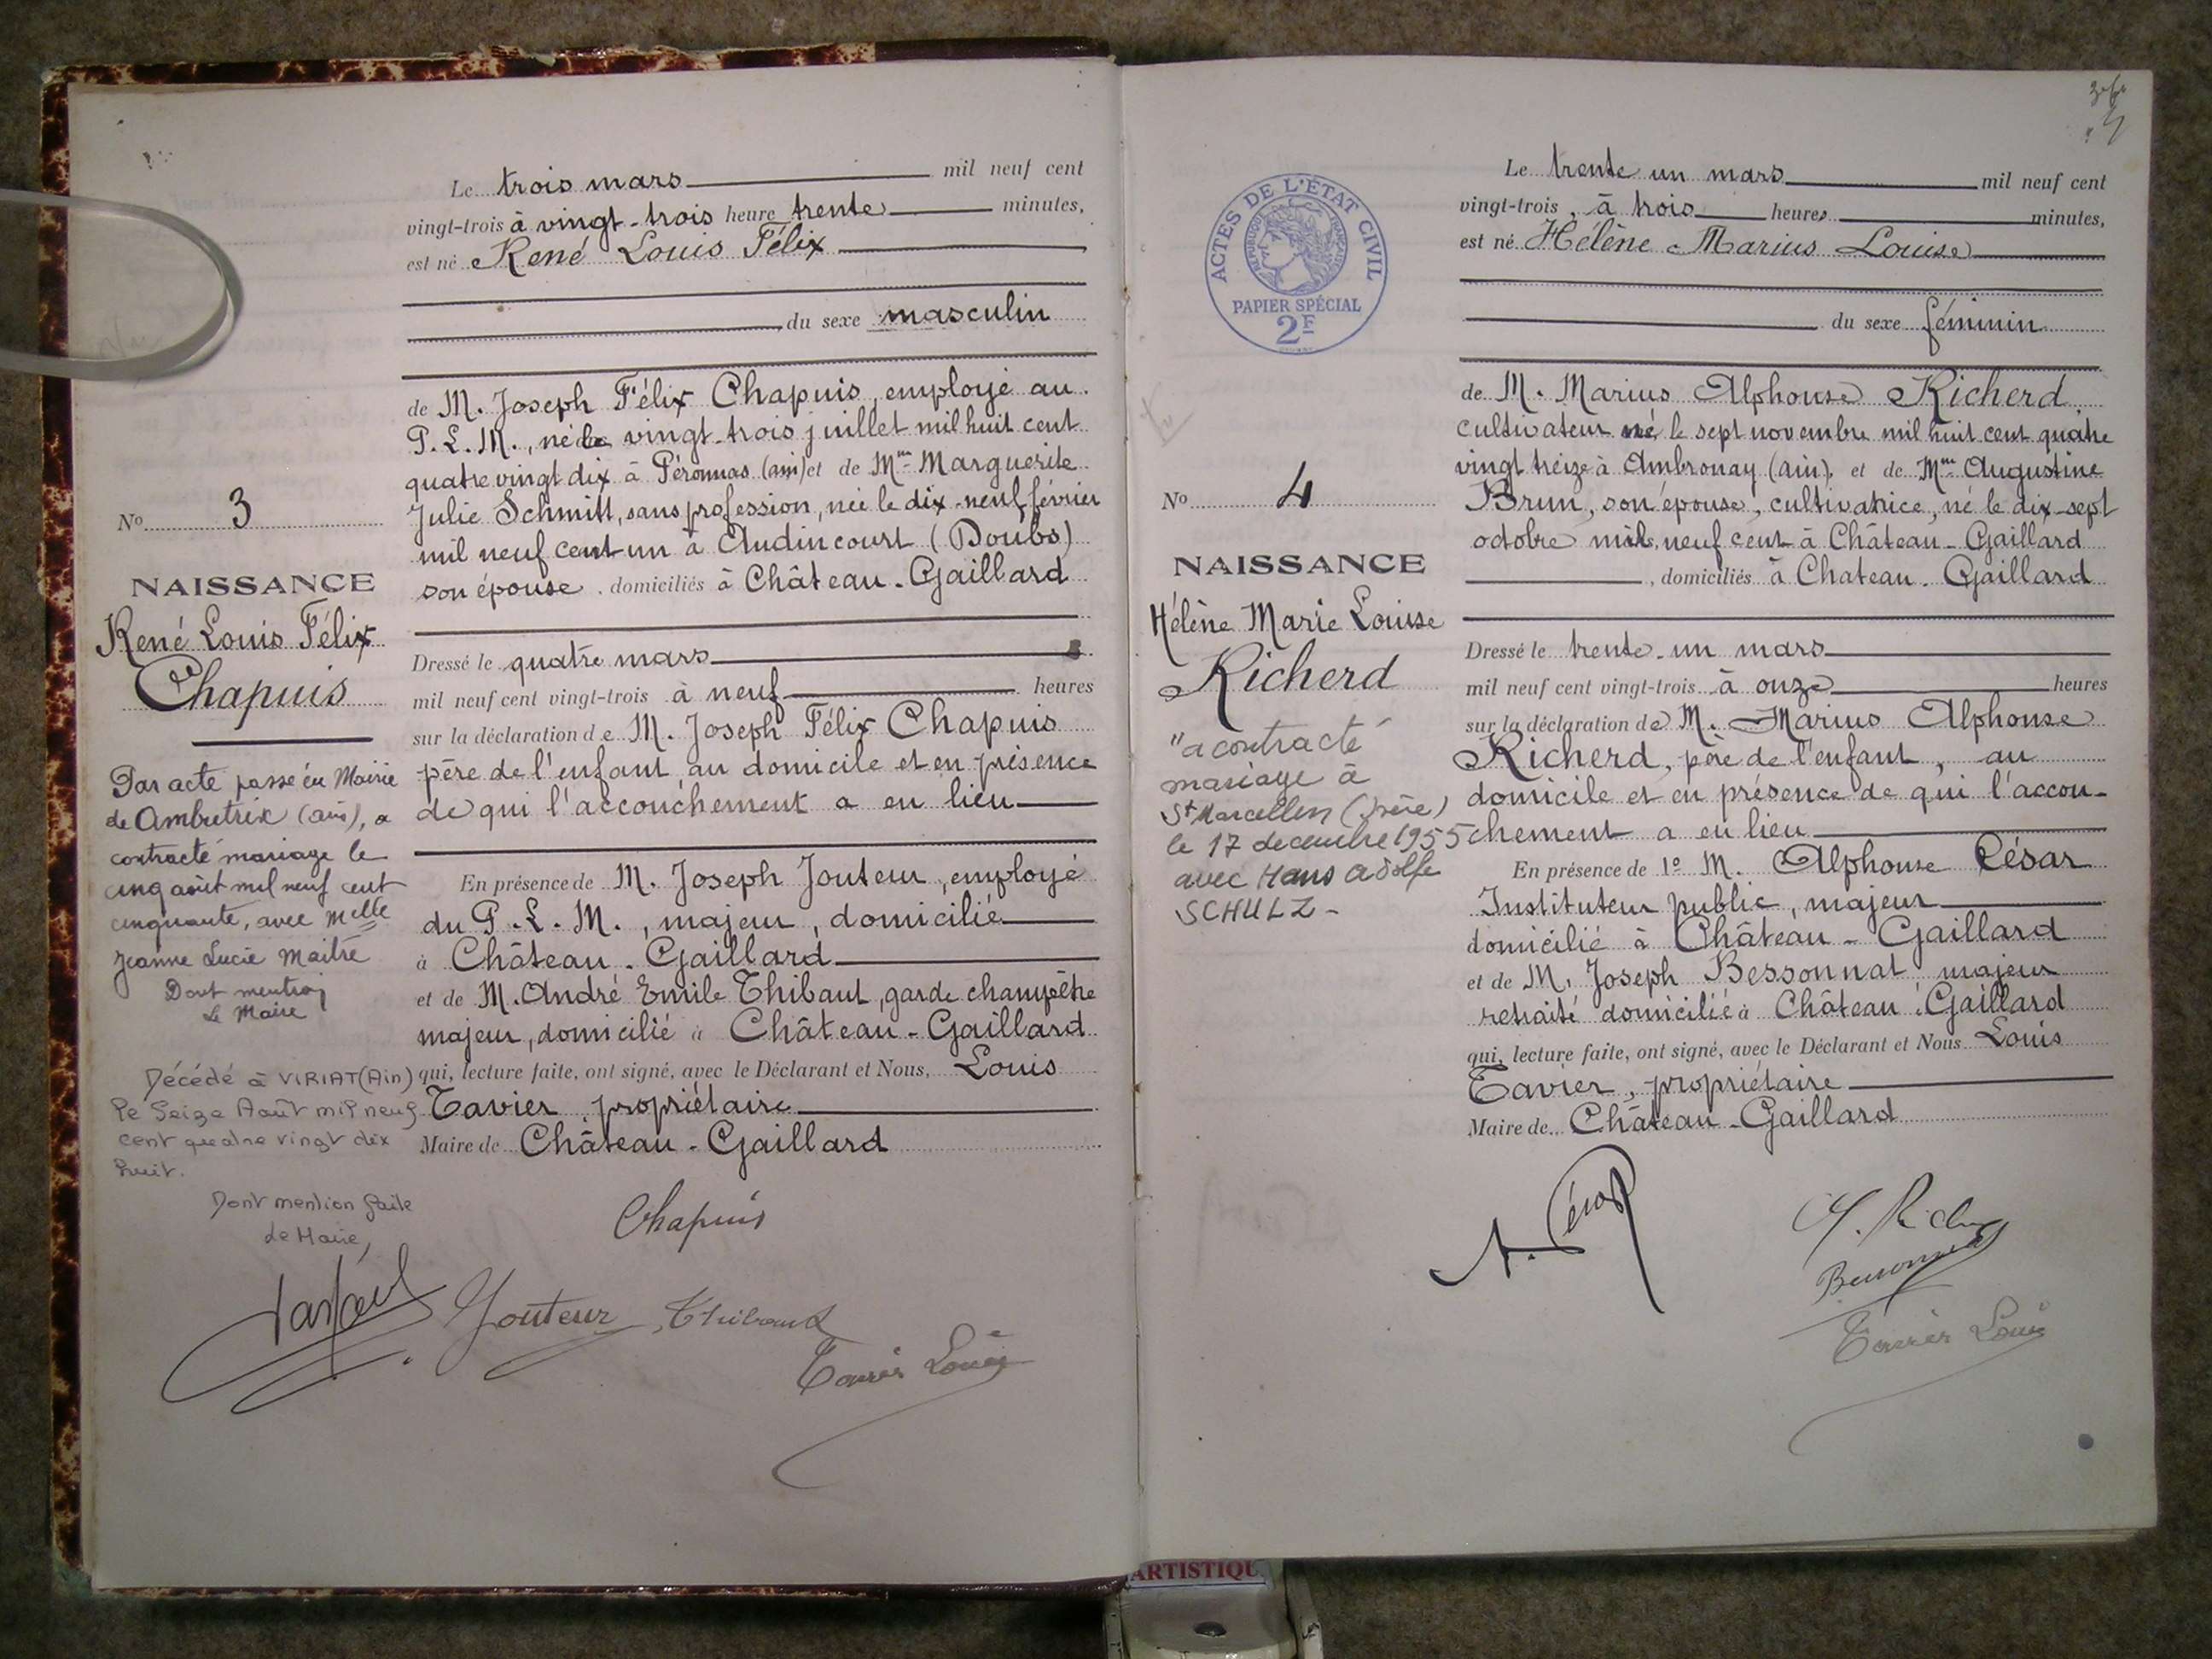 Le trois mars mil neuf cent
vingt-trois à vingt-trois heure trente minutes,
est né René Louis Félix
du sexe masculin
de M. Joseph Félix Chapuis, employé au
P.L.M., né le vingt-trois juillet mil huit cent
quatre vingt dix à Péronnas (ain) et de Mme Marguerite
Julie Schmitt, sans profession, née le dix-neuf février
mil neuf cent un à Audincourt (Doubs)
son épouse, domiciliés à Château-Gaillard
No 3
NAISSANCE
René Louis Félix
Chapuis
Dressé le quatre mars
mil neuf cent vingt-trois à neuf heures
sur la déclaration de M. Joseph Félix Chapuis
père de l'enfant, au domicile et en présence
de qui l'accouchement a eu lieu
En présence de M. Joseph Jouteur, employé
du P.L.M., majeur, domicilié
à Château-Gaillard
et de M. André Emile Thibaut, garde champêtre
majeur, domicilié à Château-Gaillard
qui, lecture faite, ont signé, avec le Déclarant et Nous, Louis
Tavier, propriétaire
Maire de Château-Gaillard
Par acte passé en Mairie
de Ambutrix (ain), a
contracté mariage le
cinq août mil neuf cent
cinquante, avec Melle
Jeanne Lucie Maitre
Dont mention
Le Maire
Décédé à VIRIAT (Ain)
le Seize Août mil neuf
cent quatre vingt dix
huit.
Dont mention faite
le Maire,
Chapuis
Jouteur Thibaut
Tavier Louis
ACTES DE L'ÉTAT CIVIL
RÉPUBLIQUE FRANÇAISE
PAPIER SPÉCIAL
2F
Le trente un mars mil neuf cent
vingt-trois, à trois heures minutes,
est né Hélène Marius Louise
du sexe féminin
de M. Marius Alphonse Richerd,
cultivateur né, le sept novembre mil huit cent quatre
vingt treize à Ambronay (ain), et de Mme Augustine
Brun, son épouse, cultivatrice, né le dix-sept
octobre mil neuf cent à Château-Gaillard
, domiciliés à Chateau-Gaillard
No 4
NAISSANCE
Hélène Marie Louise
Richerd
"a contracté
mariage à
St Marcellin (Isère)
le 17 decembre 1955
avec Hans Adolfe
SCHULZ-
Dressé le trente-un mars
mil neuf cent vingt-trois à onze heures
sur la déclaration de M. Marius Alphonse
Richerd, père de l'enfant, au
domicile et en présence de qui l'accou-
chement a eu lieu
En présence de 1o M. Alphonse César
Instituteur public, majeur
domicilié à Château-Gaillard
et de M. Joseph Bessonnat majeur
retraité domicilié à Château-Gaillard
qui, lecture faite, ont signé, avec le Déclarant et Nous Louis
Tavier, propriétaire
Maire de Château-Gaillard
A. César
Bessonnat
Tavier Louis
ARTISTIQU